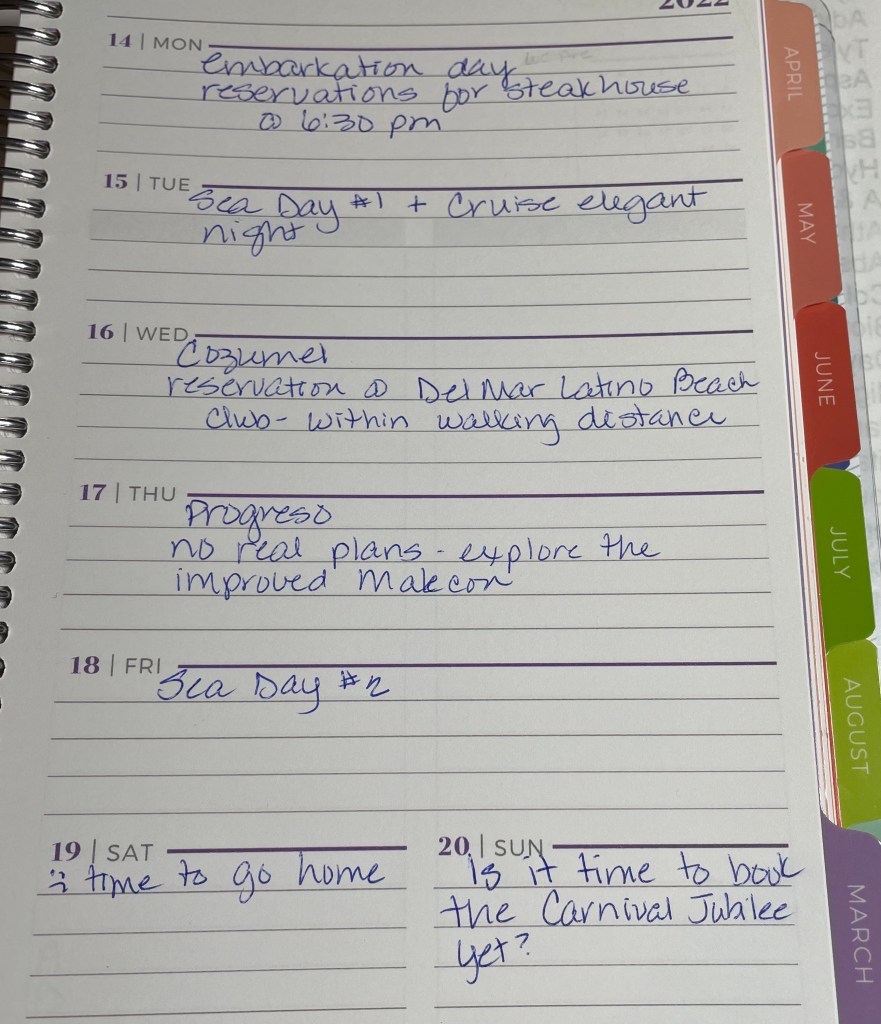 2022
14 | MON
embarkation day
reservations for steakhouse
@ 6:30 pm
15 | TUE
Sea Day #1 + Cruise elegant
night
16 | WED
Cozumel
reservation @ Del Mar Latino Beach
Club - within walking distance
17 | THU
Progreso
no real plans - explore the
improved Malecon
18 | FRI
Sea Day #2
19 | SAT
:( time to go home
20 | SUN
Is it time to book
the Carnival Jubilee
yet?
APRIL
MAY
JUNE
JULY
AUGUST
MARCH